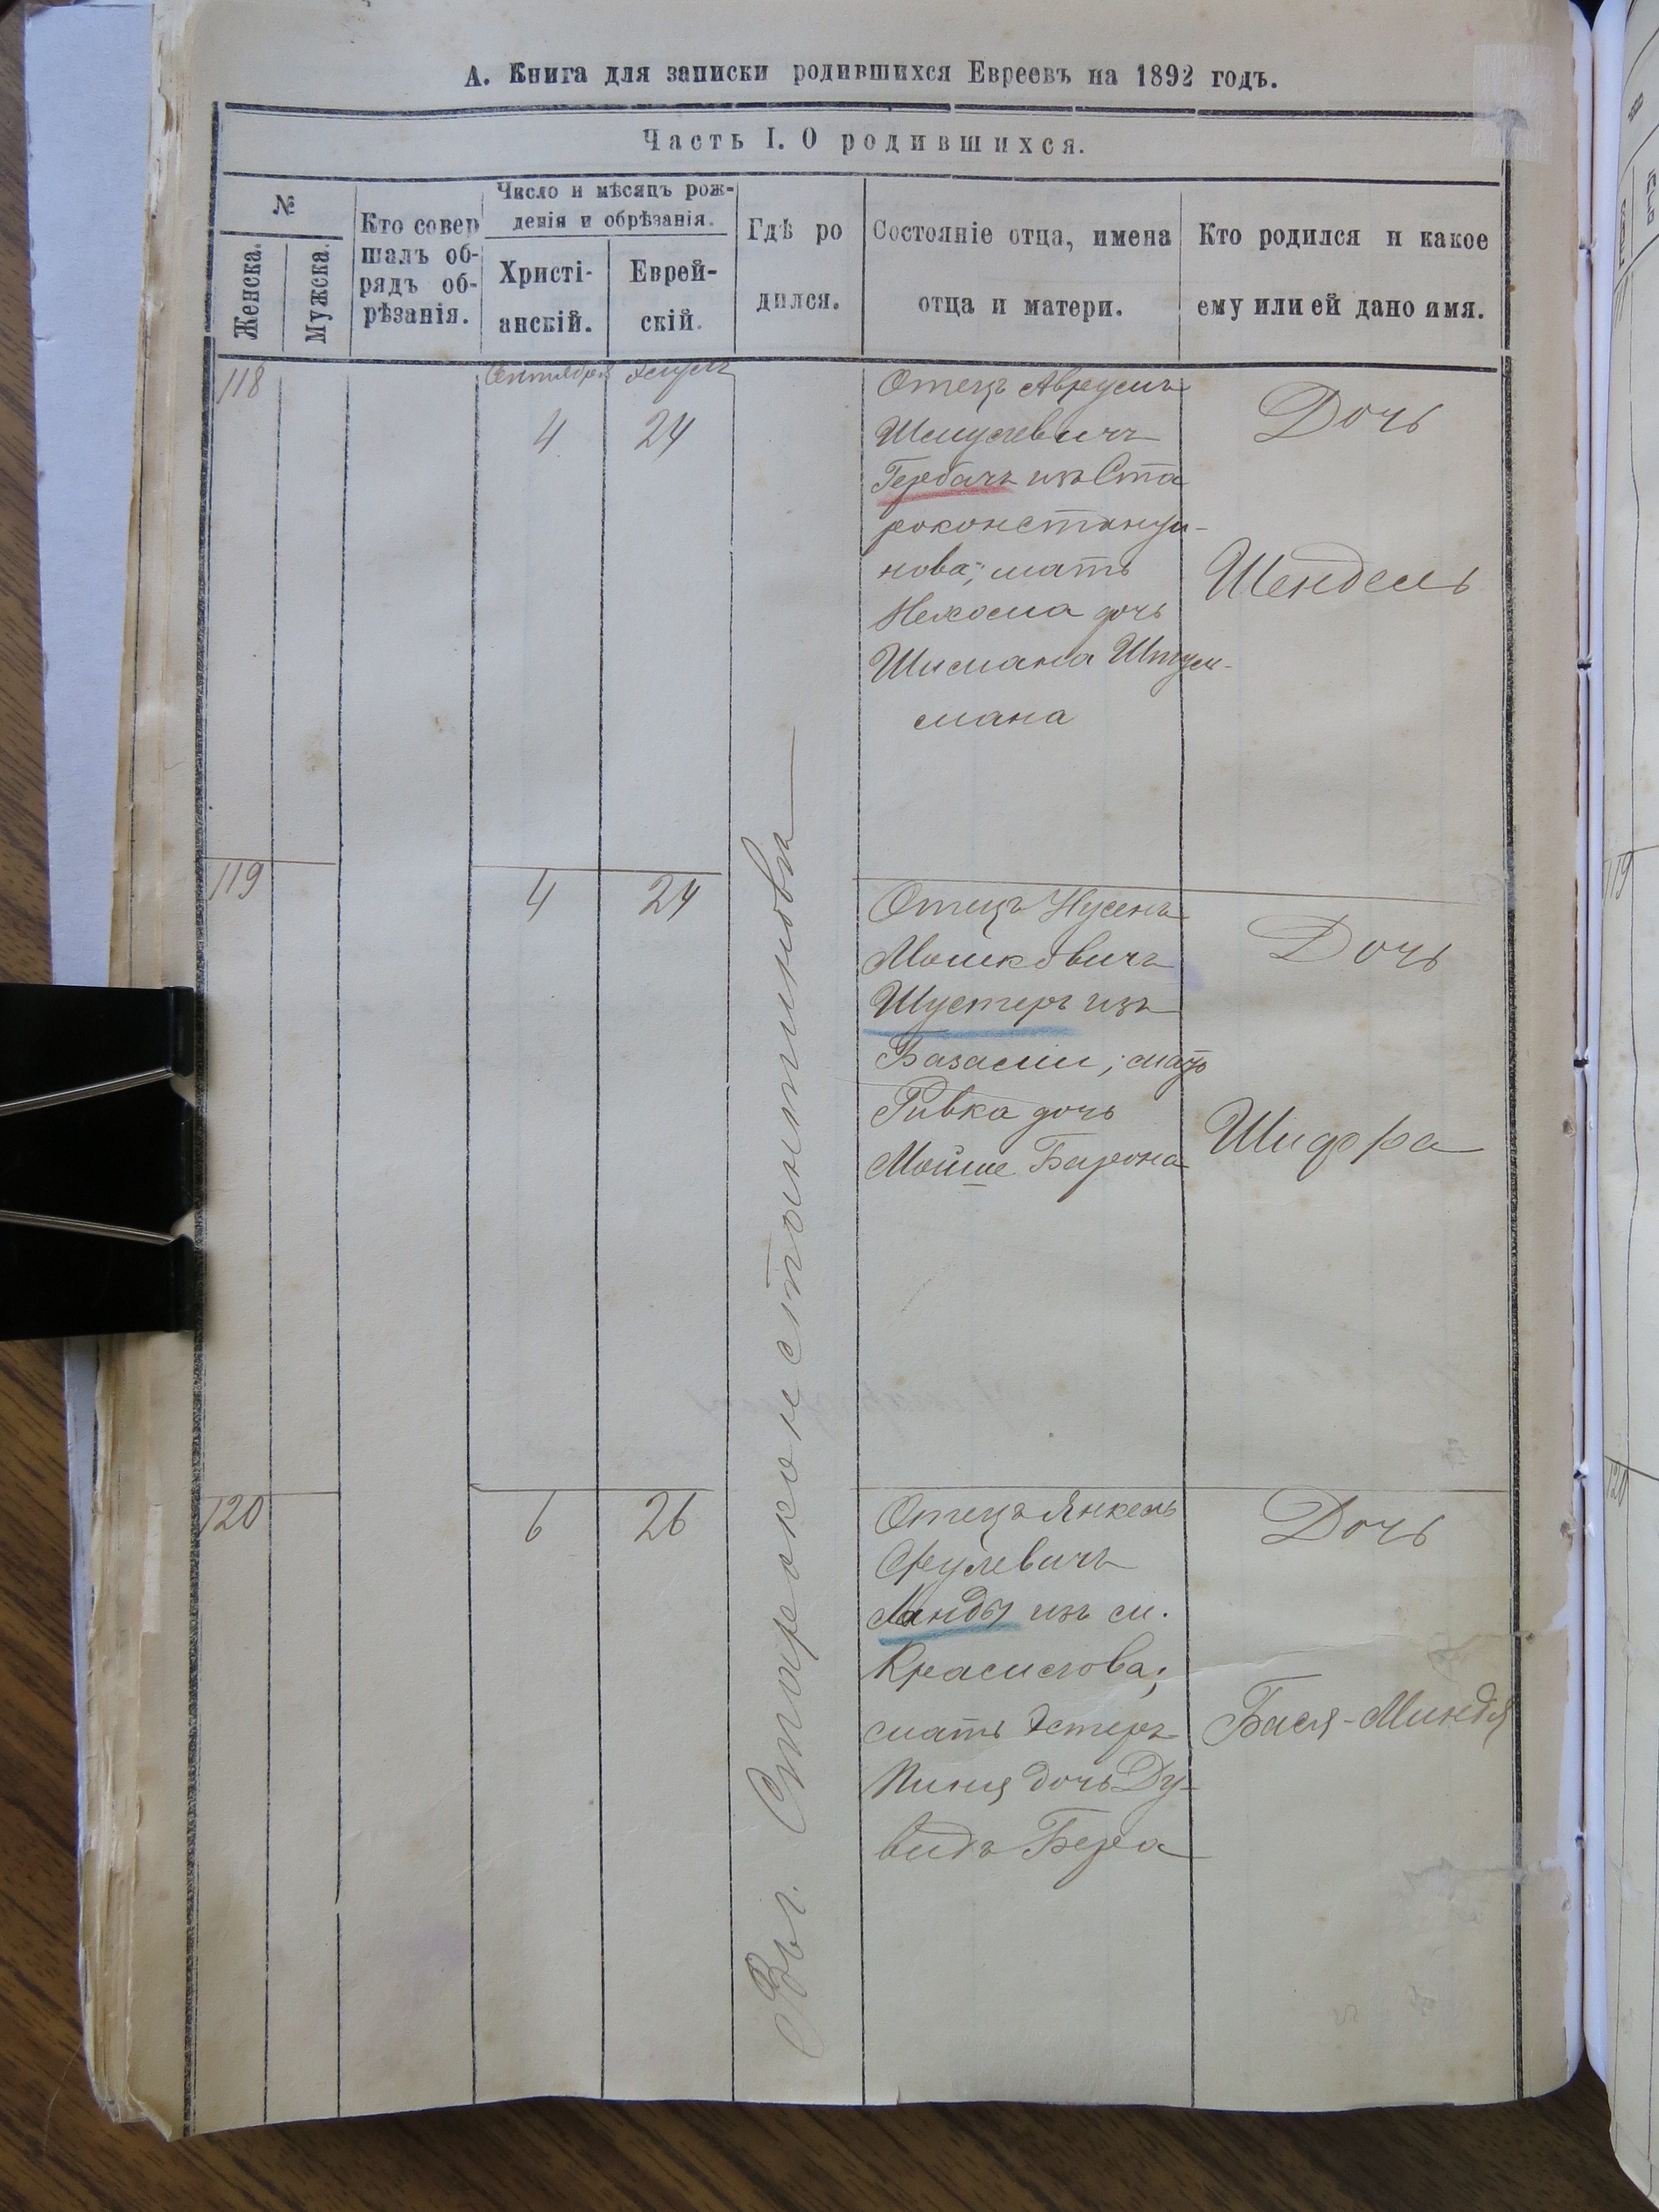 А. Книга для записки родившихся Евреевъ на 1892 годъ.
Часть I. О родившихся.
№
Женска.
Мужска.
Кто совер
шалъ об-
рядъ об-
рѣзанія.
Число и мѣсяцъ рож-
денія и обрѣзанія.
Христі-
анскій.
Еврей-
скій.
Гдѣ ро
дился.
Состояніе отца, имена
отца и матери.
Кто родился и какое
ему или ей дано имя.
118
Сентября
Элулъ
4
24
Отецъ Аврумъ
Шмулевичъ
Гербачъ изъ Ста
роконстанти-
нова; мать
Нехома дочь
Шимана
мана
Дочь
Шендель
119
4
24
Отецъ Нусенъ
Мошковичъ
Шустеръ изъ
Базаліи; мать
Ривка дочь
Мойше Барона
Дочь
Шифра
120
6
26
Отецъ Янкель
Срулевичъ
Ланды изъ м.
Красилова;
мать Эстеръ
дочь Ду-
видъ Бера
Дочь
Бася-Миндля
Въ г. Староконстантиновъ
119
120